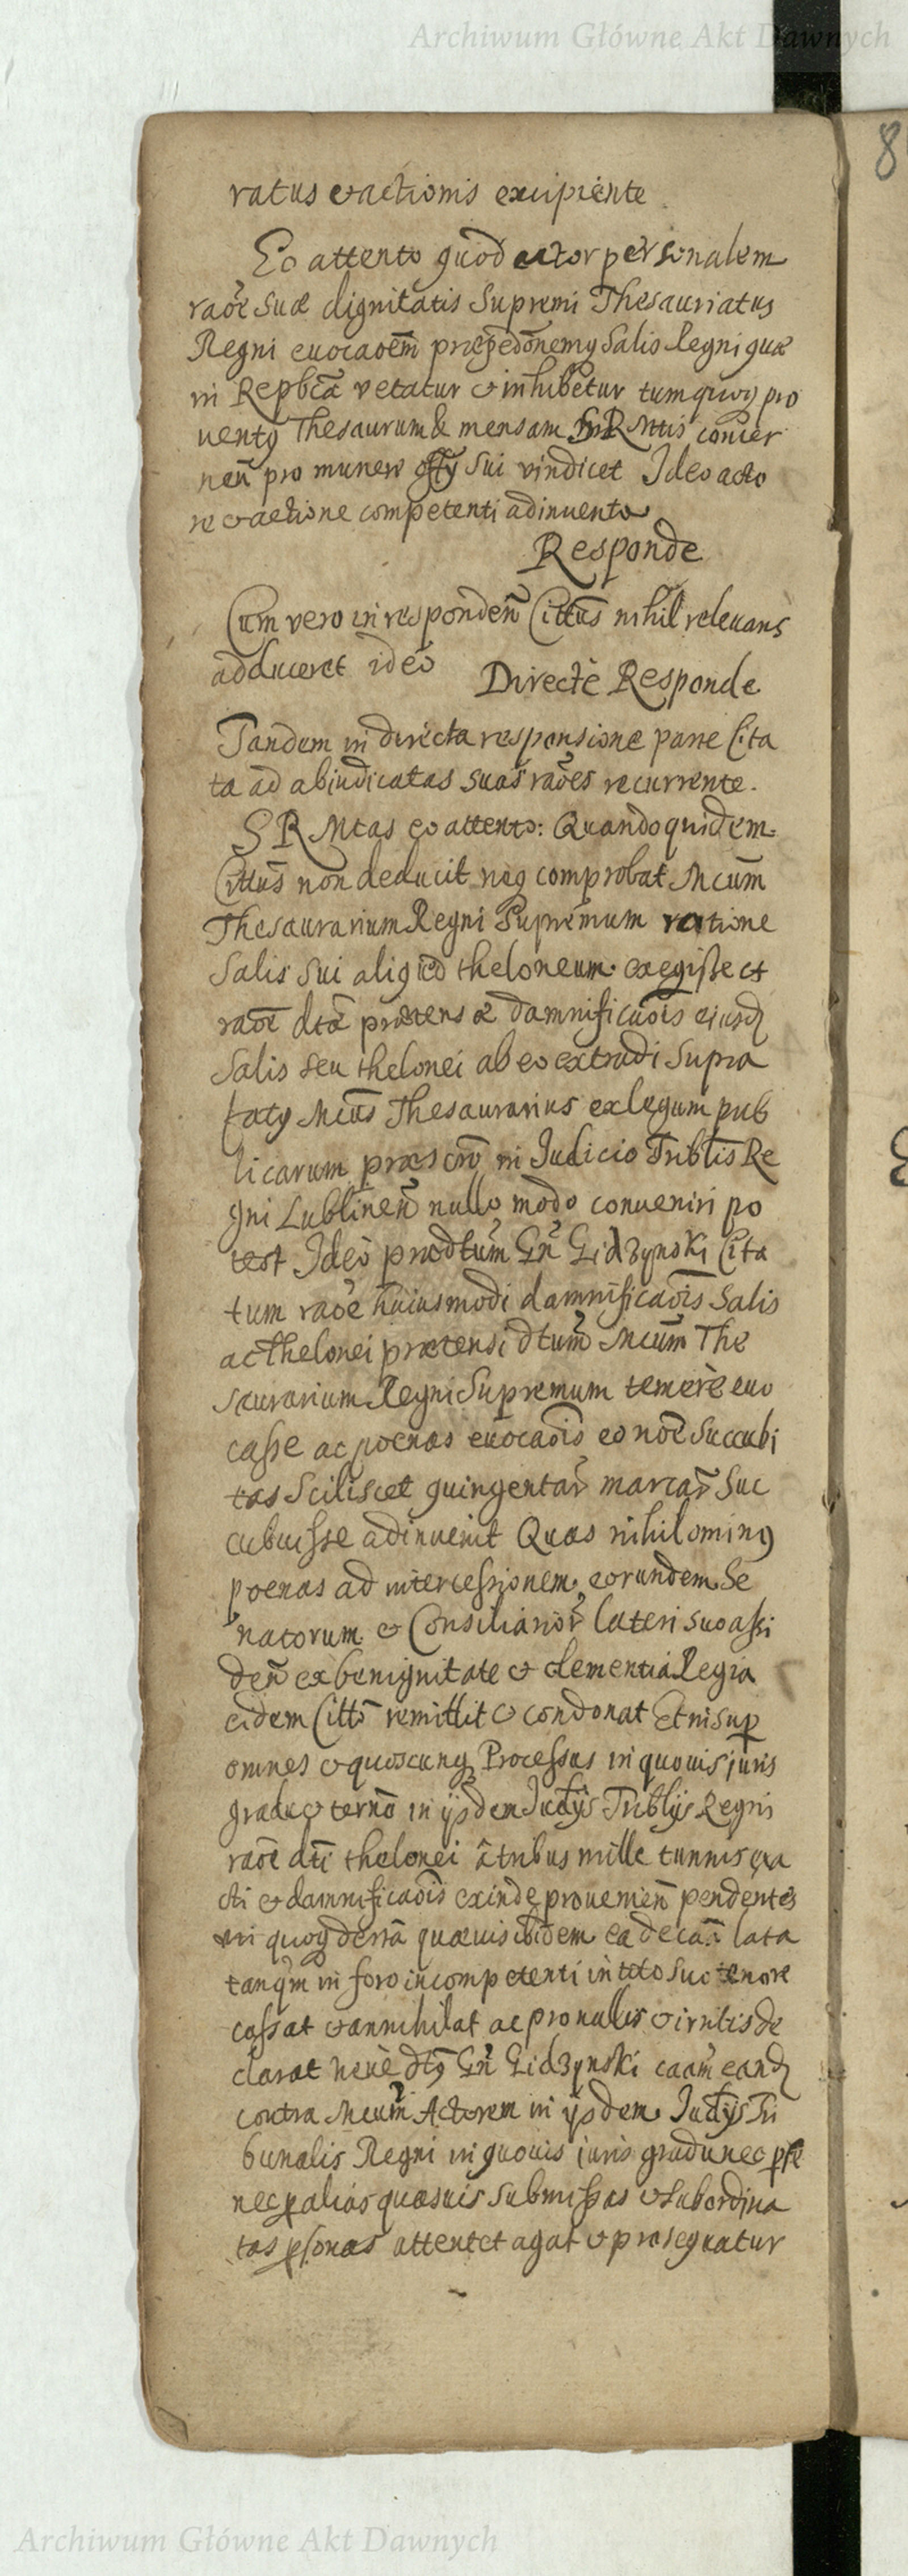 Archiwum Główne Akt Dawnych
8
ratus et actionis excipiente
Eo attento quod actor personalem
raõe suæ dignitatis Supremi Thesauriatus
Regni euocaoẽm Salis Regni quæ
in Repbcã vetatur et inhibetur tum quoq pro
uentq Thesaurum & mensam S R Mttis concer
neñ pro munere offy sui vindicet Ideo acto
re et actione competenti adinuento
Responde
Cum vero in respondeñ Cittũs nihil releuans
adduceret ideo
Directe Responde
Tandem in directa responsione parte Cita
ta ad abiudicatas suas raões recurrente.
S R Mtas eo attento: Quandoquidem
Cittũs non deducit neq comprobat Mcũm
Thesaurarium Regni Supremum ratione
Salis sui aliq theloneum exegisse et
raõe dtã prætensæ damnificaõis eiusd
Salis seu thelonei ab eo extradi Supra
fatq Mcũs Thesaurarius ex legum pub
licarum præscrõ in Iudicio Tribtis Re
gni Lublineñ nullo modo conueniri po
test Ideo prædtum Gñ Gidzynski Cita
tum raõe huiusmodi damnificaõis Salis
ac thelonei prætensi dtum Mcũm The
saurarium Regni Supremum temere euo
casse ac poenas euocaõis eo noẽ succubi
tas Sciliscet quingentar marcar suc
cubuisse adinuenit Quas nihilominq
poenas ad intercessionem eorundem Se
natorum et Consiliarior lateri suo assi
deñ ex benignitate et clementia Regia
eidem Cittõ remittit et condonat Et insup
omnes et quoscunq Processus in quouis iuris
gradu et termõ in ijsdem Iudijs Triblijs Regni
raõe dti thelonei a tribus mille tunnis exa
cti et damnificaõis exinde proueniẽn pendentes
in quoq quæuis ibidem ea de caã lata
tanqm in foro incompetenti in toto suo tenore
cassat et annihilat ac pro nullis et irritis de
clarat neue dtq Gñ Gidzynski caãm eand
contra Mcũm Actorem in ijsdem Iudijs Tri
bunalis Regni in quouis iuris gradu nec p se
nec p alias quasuis submissas et subordina
tas psonas attentet agat et prosequatur
Archiwum Główne Akt Dawnych